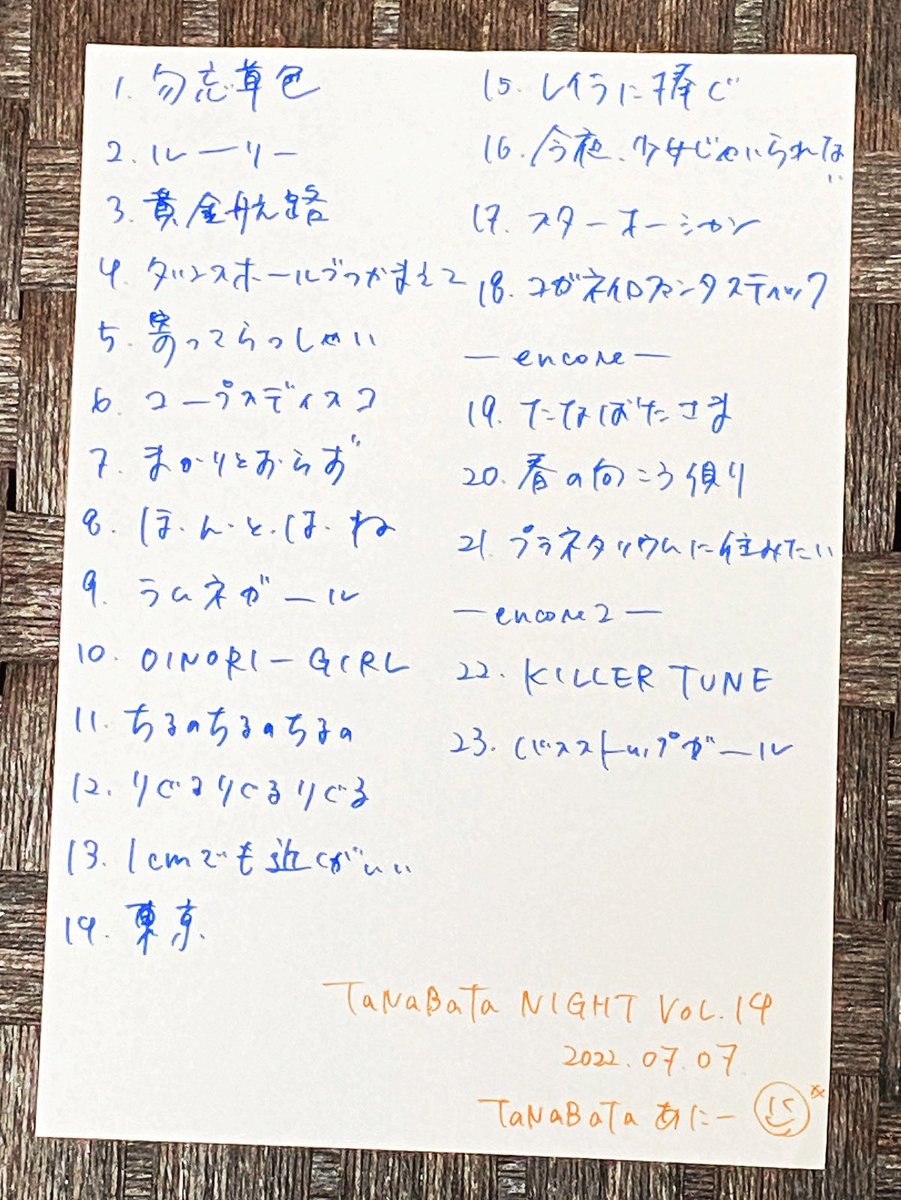 1. 勿忘草色
2. ルーリー
3. 黄金航路
4. ダンスホールでつかまえて
5. 寄ってらっしゃい
6. コープスディスコ
7. まかりとおらず
8. ほ・ん・と・ほ・ね
9. ラムネガール
10. OINORI-GIRL
11. ちるaちるaちるa
12. りぐるりぐるりぐる
13. 1cmでも近くがいい
14. 東京
15. レイラに捧ぐ
16. 今夜、少女じゃいられない
17. スターオーシャン
18. コガネイロファンタスティック
—encore—
19. たなばたさま
20. 春の向こう側り
21. プラネタリウムに住みたい
—encore2—
22. KILLER TUNE
23. バスストップガール
TaNaBaTa NIGHT VoL.14
2022.07.07
TaNaBaTa あにー